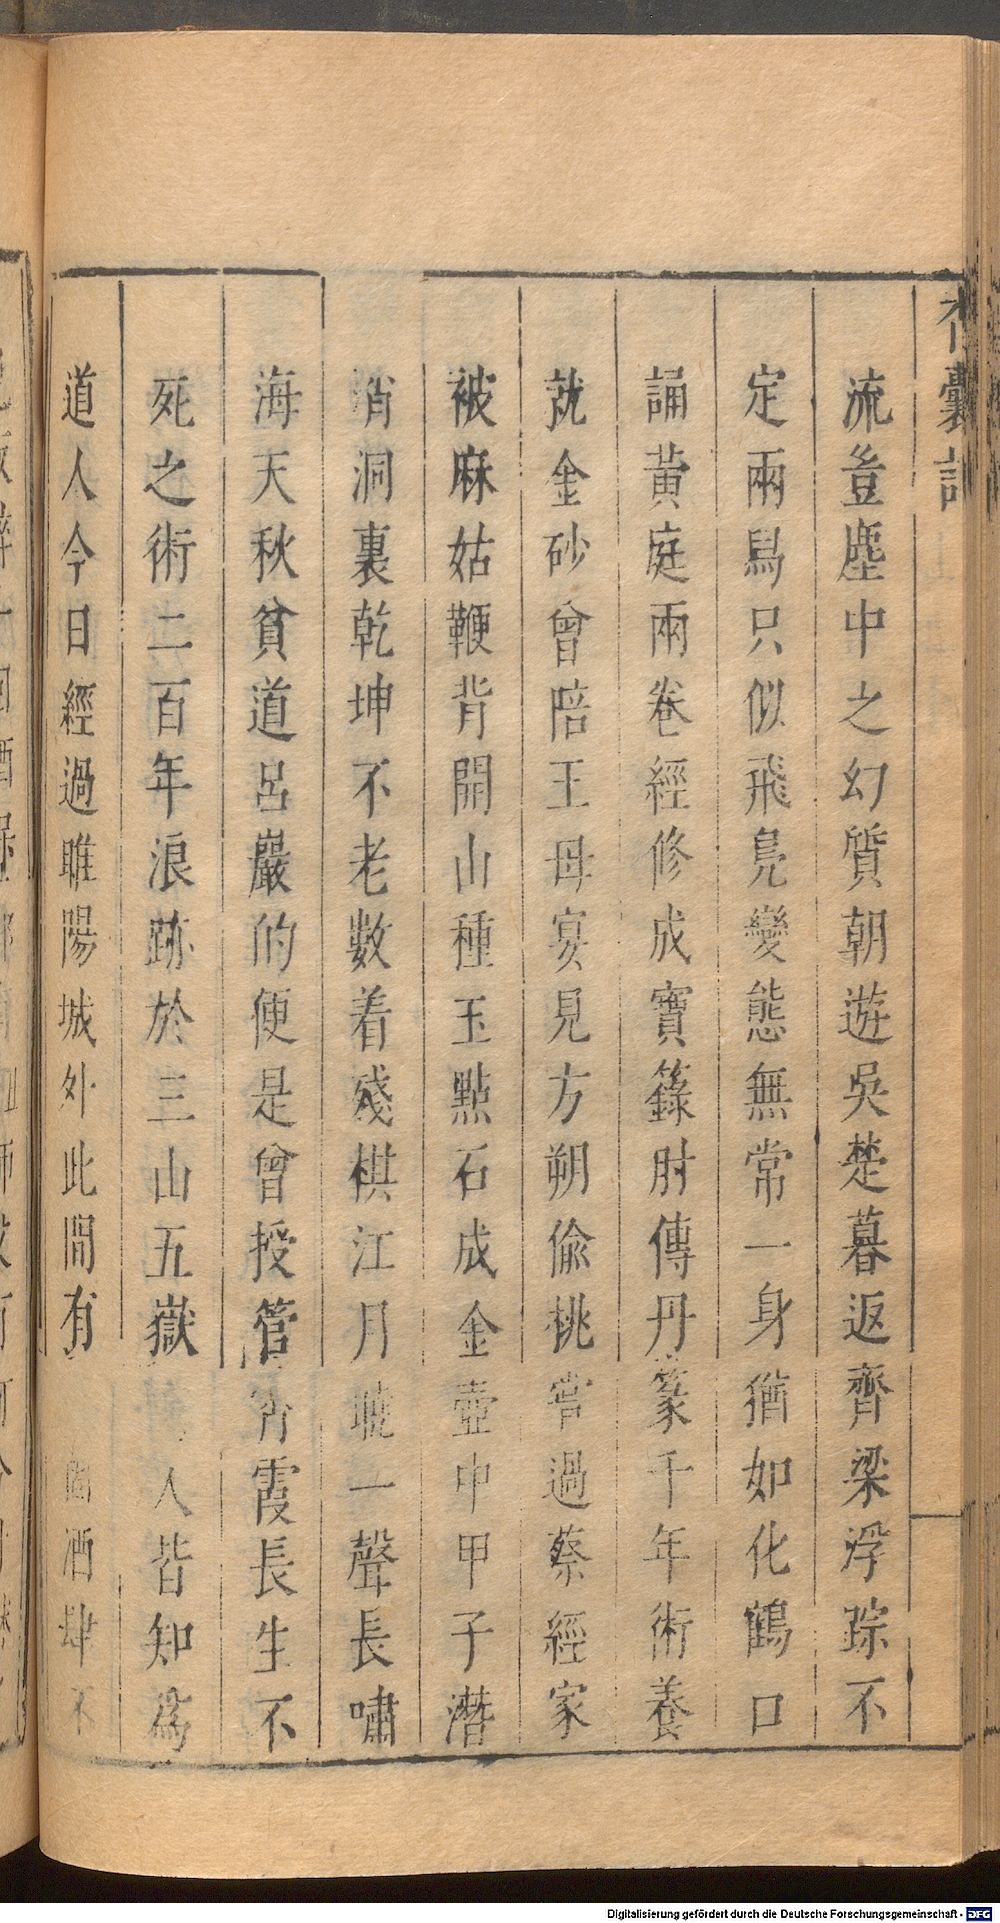 香囊記
流豈塵中之幻質朝遊吳楚暮返齊梁浮踪不
定兩舄只似飛鳧變態無常一身猶如化鶴口
誦黄庭兩卷經修成寶籙肘傳丹篆千年術養
就金砂曾陪王母宴見方朔偷桃嘗過蔡經家
被麻姑鞭背開山種玉點石成金壺中甲子潛
消洞裏乾坤不老數着殘棋江月曉一聲長嘯
海天秋貧道呂巖的便是曾授管霄霞長生不
死之術二百年浪跡於三山五嶽人皆知為
道人今日經過睢陽城外此間有個酒肆不
Digitalisierung gefördert durch die Deutsche Forschungsgemeinschaft - DFG